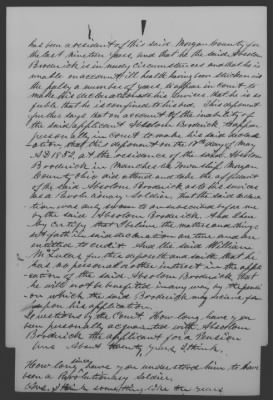 has been a resident of this said Morgan County for
the last nineteen years, and that he the said Absolom
Broderick is in needy circumstances and that he is
unable on account of ill health having been stricken with
the palsy a number of years, to appear in court to
make his declaration as to his services, that he is so
feeble that he is confined to his bed. This deponent
further says that on account of the inability of
the said applicant Absolom Broderick to appear
personally in Court to make his said decla
ration, that this deponent on the 18th day of May
A.D. 1852, at the residence of the said Absolom
Broderick in Township Morgan
County Ohio did attend and take the affidavit
of the said Absolom Broderick as to his services
as a Revolutionary Soldier, that the said declar
ation was duly sworn to and subscribed before me
by the said Absolom Broderick. And I here
by certify that I believe the matters and things
set forth in said declaration are true and are
entitled to credit. And the said William
McIntosh further deposeth and saith, that he
has no personal interest in the appli
cation of the said Absolom Broderick, that
he will not be benefited in any way by the pensi
on which the said Broderick may receive
upon his application.
Questions by the Court. How long have you
been personally acquainted with Absolom
Broderick the applicant for a Pension
Ans. About twenty years I think.
How long since have you understood him to have
been a Revolutionary Soldier.
Ans. I think something like ten years